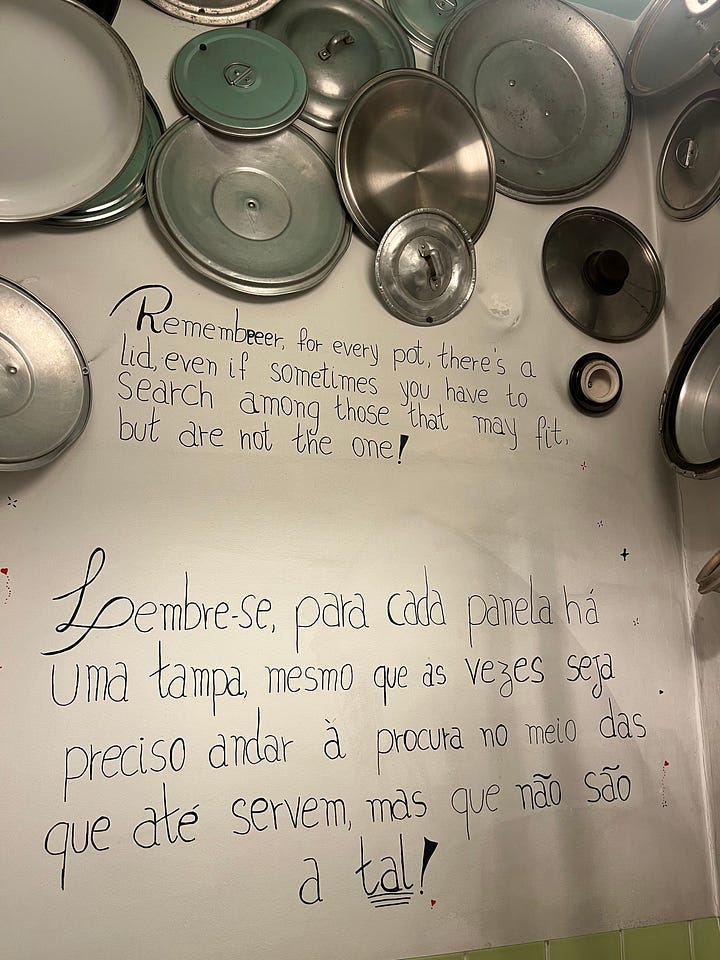 Remembeeer, for every pot, there's a
lid, even if sometimes you have to
search among those that may fit,
but are not the one!
Lembre-se, para cada panela há
uma tampa, mesmo que as vezes seja
preciso andar à procura no meio das
que até servem, mas que não são
a tal!